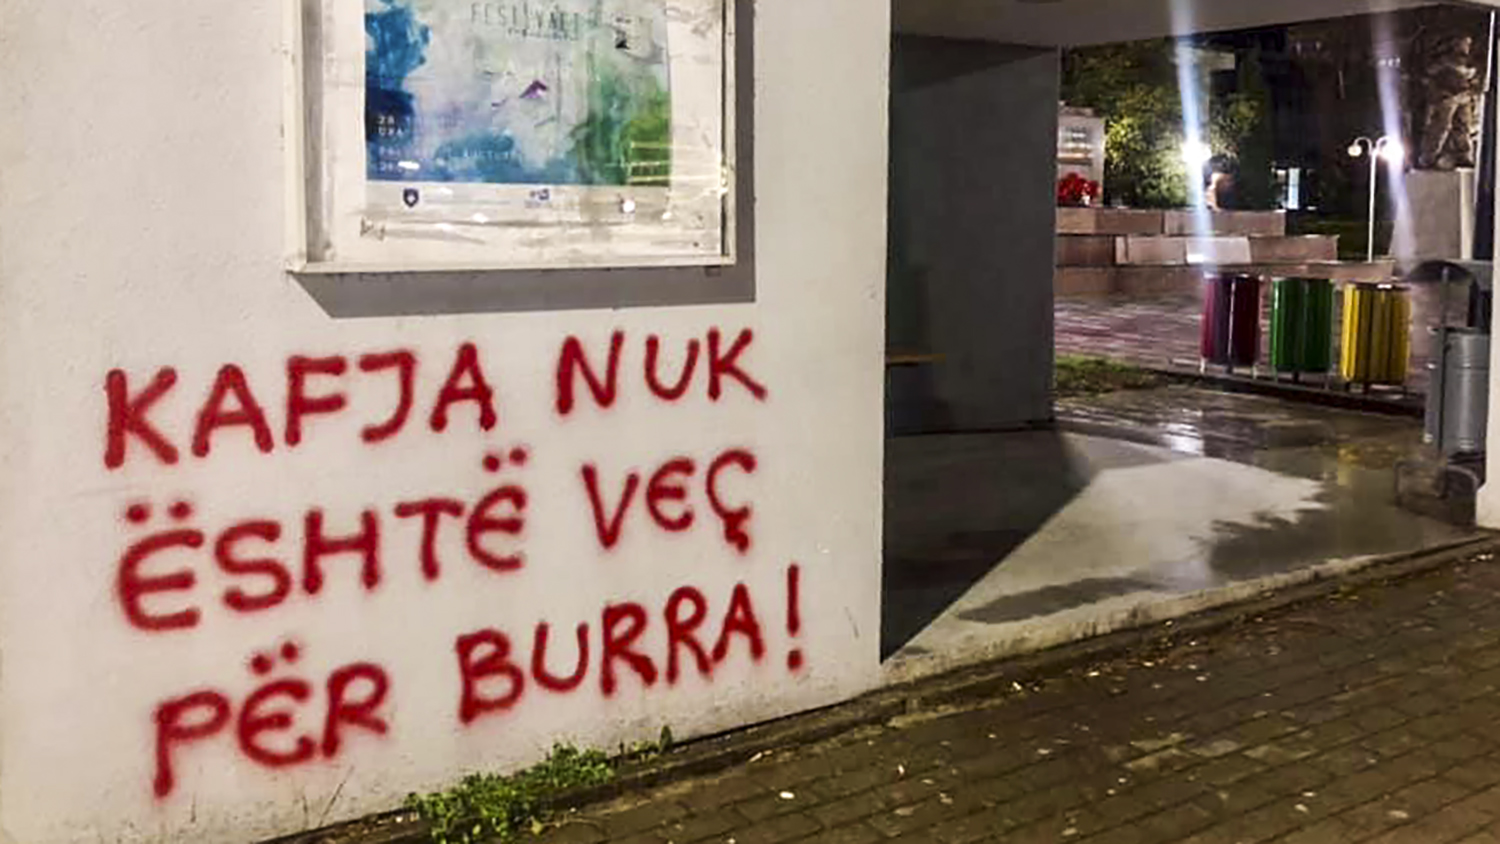 FESTIVALI
KAFJA NUK
ËSHTË VEÇ
PËR BURRA!